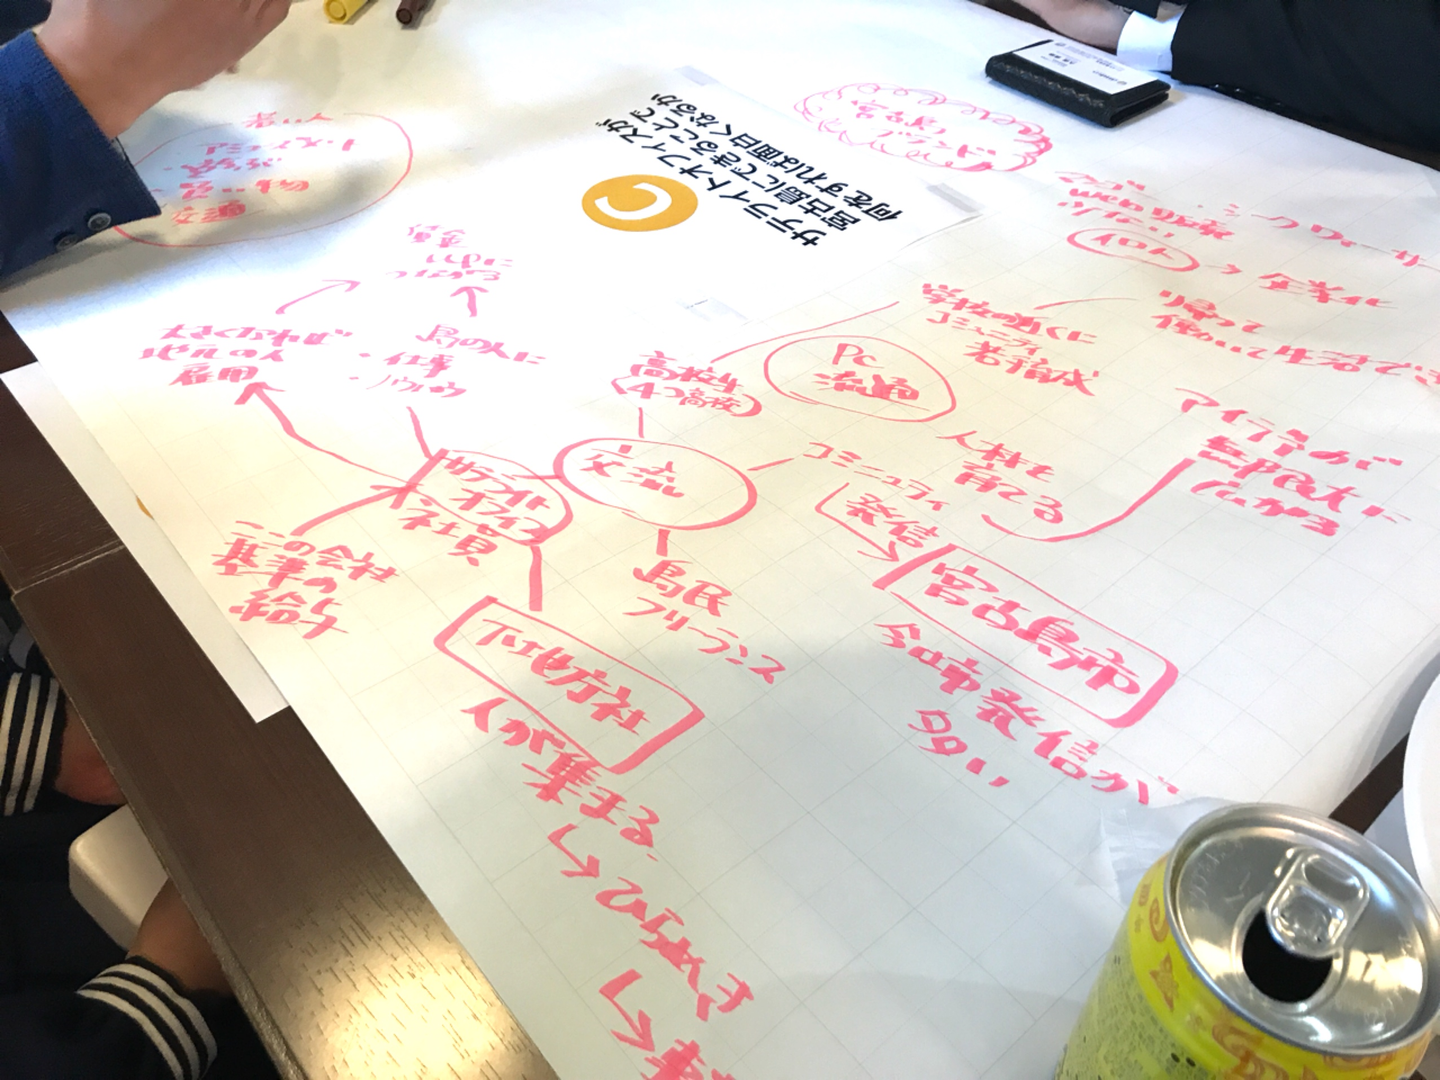 C
サテライトオフィスが
宮古島にできることで
何をすれば面白くなるか
仕事
UPに
つながる
大きくなれば
地元の人
雇用
島の人に
・仕事
・ノウハウ
高校生
(4つ高校)
PC
流通
学校の近くに
コミュニティ
若手育成
web
シークワーサー
→ 企業化
り帰って
働いて生活でき
アイデアが
無限大に
広がる
人材を
育てる
コミュニティ
発信
交流
サテライト
オフィス
社員
この会社
基準の
給与
島民
フリーランス
宮古島市
今は市発信が
多い
下地方社
人が集まる
↳ひらめき
↳